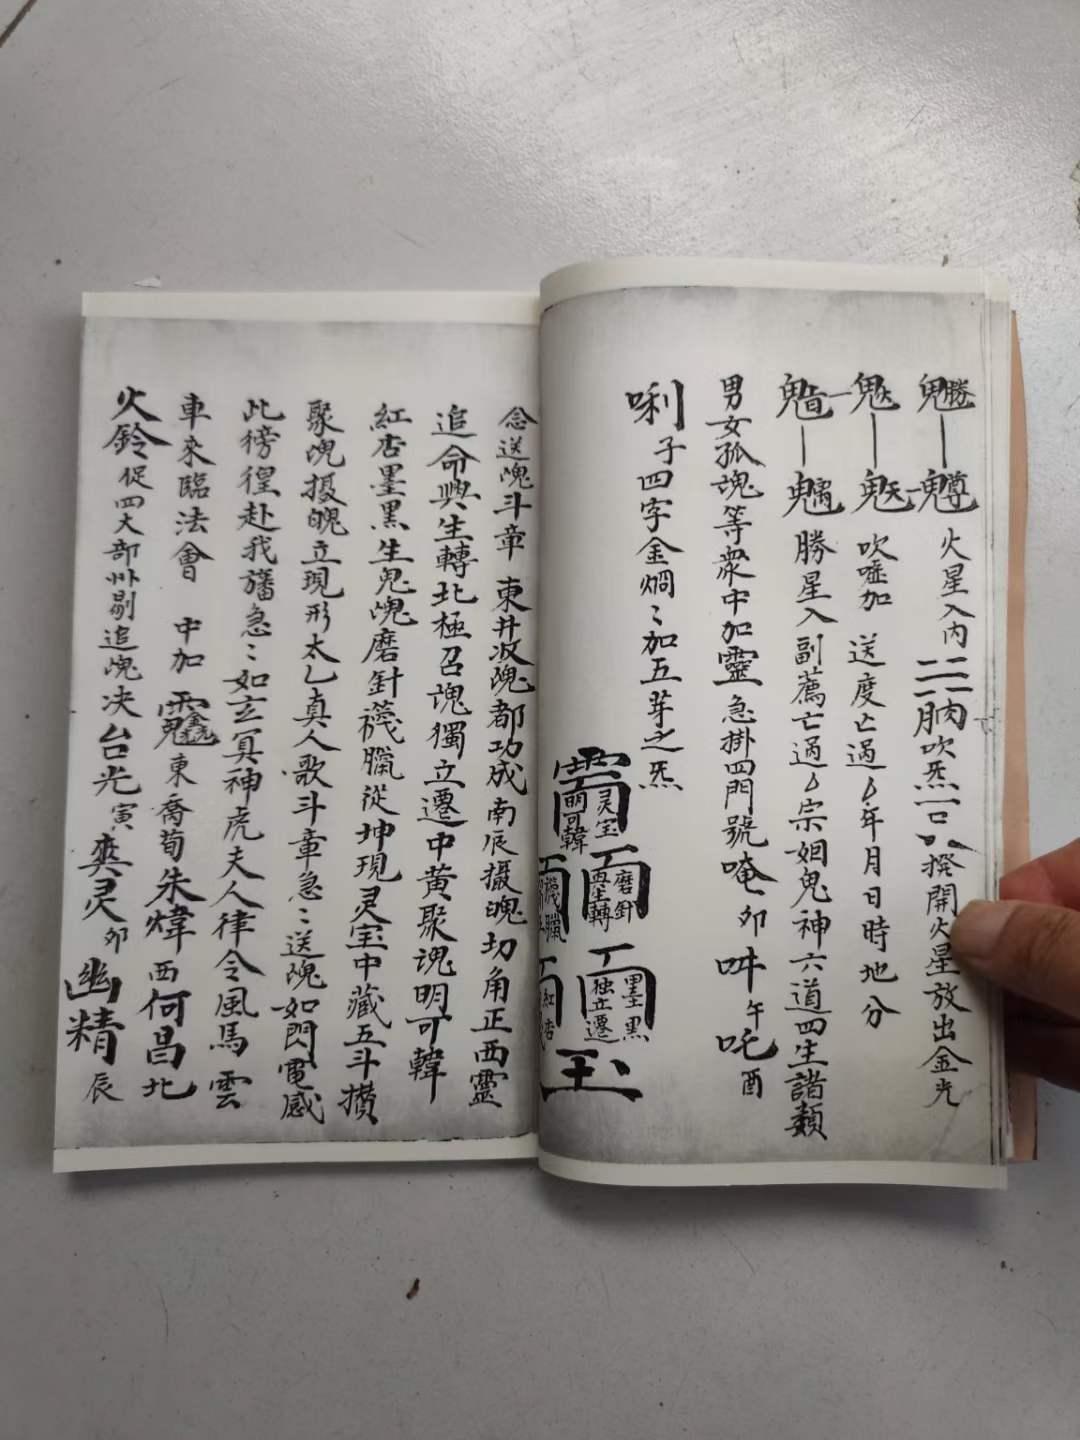 火星入內 吹炁 揆開火星放出金光
吹噓加 送度亡過 年月日時地分
勝星入 副薦亡過 宗姻鬼神六道四生諸類
男女孤魂等眾中加靈急掛四門號唵卯吽午吒酉
唎子四字金烱〻加五芽之炁
灵宝 明可韓
磨針 再生轉
墨黑 独立遷
念送魂斗章 東井收魂都功成南辰摄魄功角正西靈
追命與生轉北極召魂獨立遷中黄聚魂明可韓
紅杏墨黑生鬼魂磨針襪臘從坤現灵宝中藏五斗攅
聚魂摄魄立現形太乙真人歌斗章急〻送魂如閃電感
此徬徨赴我旛急〻如玄冥神虎夫人律令風馬雲
車來臨法會 中加 東喬荀朱煒西何昌北
火鈴促四大部卅剔追魂决台光寅爽灵卯幽精辰